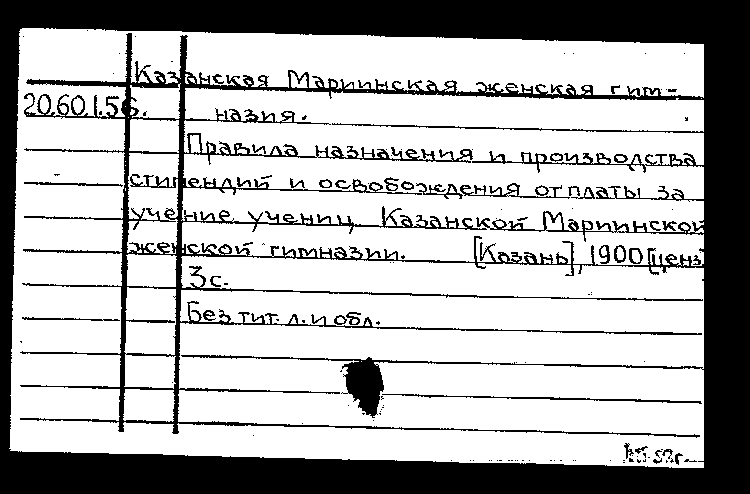 Казанская Мариинская женская гим-
20.60.1.56. назия.
Правила назначения и производства
стипендий и освобождения от платы за
учение учениц Казанской Мариинской
женской гимназии. [Казань], 1900 [ценз]
3с.
Без тит. л. и обл.